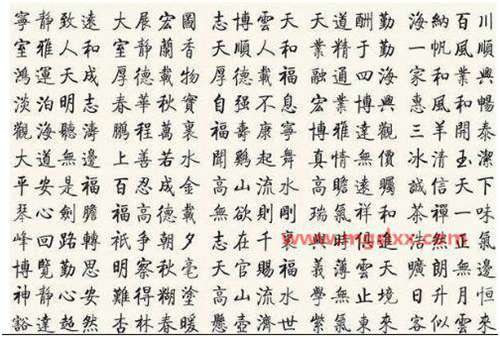 寧靜致遠 大展宏圖 志博雲天 天道酬勤 海納百川
室雅人和 室靜蘭香 大順人和 業精于勤 一帆風順
鴻運天成 厚德載物 厚德載福 融通四海 家和業興
淡泊明志 春華秋實 自强不息 宏業興家 惠風和暢
觀海聽濤 鵬程萬裏 福壽康寧 博雅達觀 三羊開泰
大道無邊 上善若水 聞鷄起舞 真情無價 冰清玉潔
平安是福 百忍成金 高山流水 高瞻遠矚 誠信天下
琴心劍膽 福高德載 無欲則剛 瑞氣祥和 茶禪一味
峰回路轉 祇争朝夕 志在千裏 與時俱進 浩然正氣
博覽勤思 明察秋毫 天官賜福 義薄雲天
神靜心安 難得糊塗 高山福水 學無止境
豁達超然 杏林春暖 懸壺濟世 紫氣東來 客似雲來